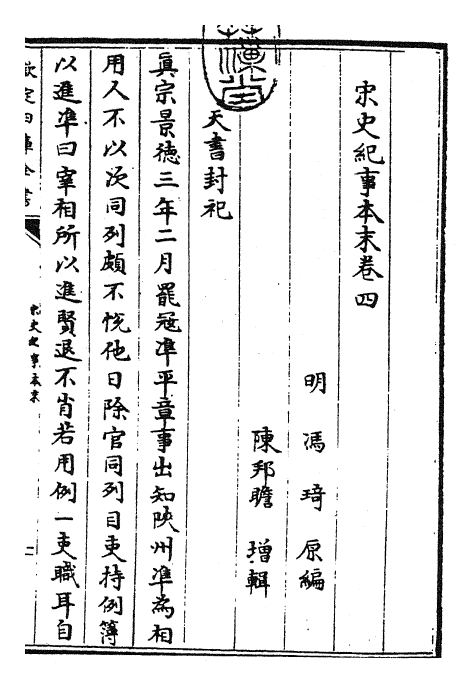 宋史紀事本末卷四
明　馮　琦　原編
陳邦瞻　增輯
天書封祀
真宗景德三年二月罷冦凖平章事出知陜州凖為相
用人不以次同列頗不悦他日除官同列目吏持例簿
以進凖曰宰相所以進賢退不肖若用例一吏職耳自
欽定四庫全書
宋史紀事本末